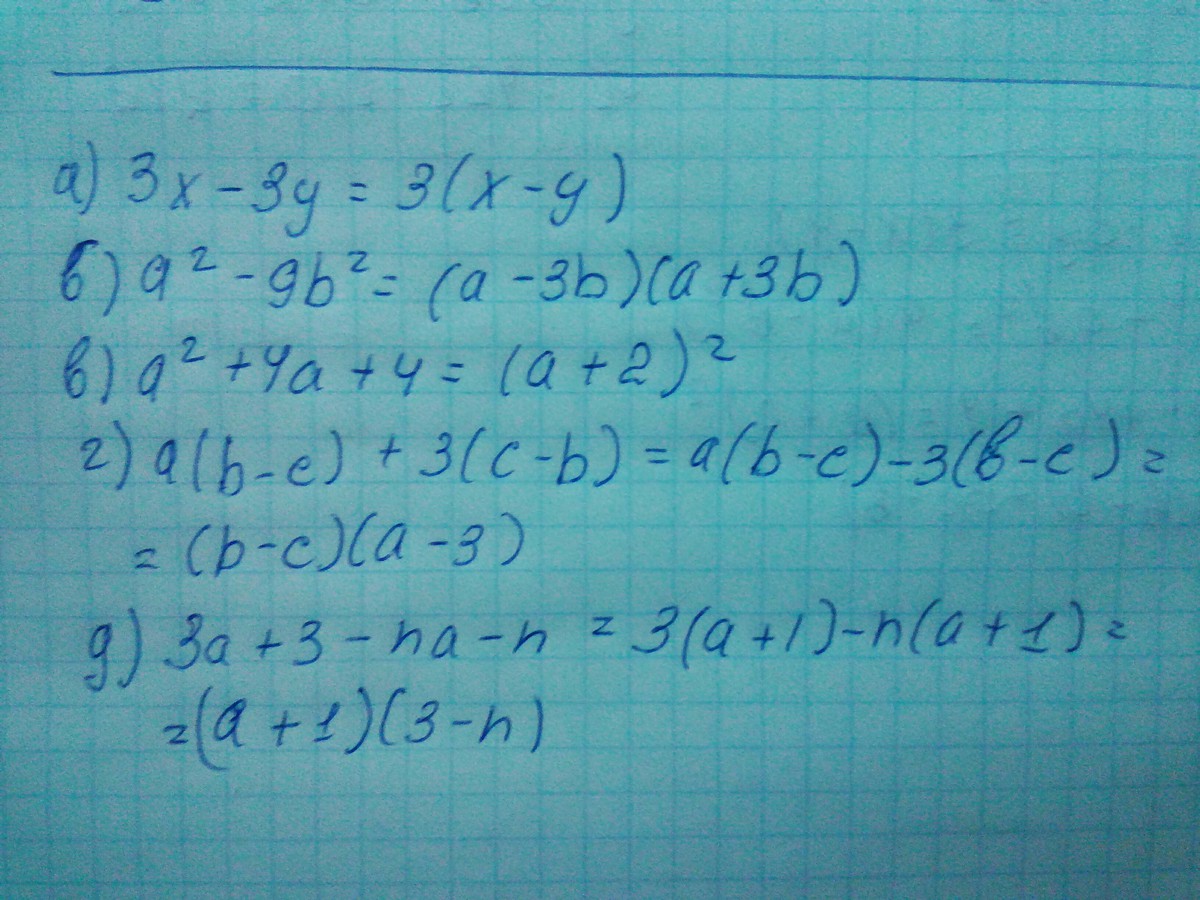 а) 3x - 3y = 3(x - y)
б) a² - 9b² = (a - 3b)(a + 3b)
в) a² + 4a + 4 = (a + 2)²
г) a(b - c) + 3(c - b) = a(b - c) - 3(b - c) =
= (b - c)(a - 3)
д) 3a + 3 - na - n = 3(a + 1) - n(a + 1) =
= (a + 1)(3 - n)